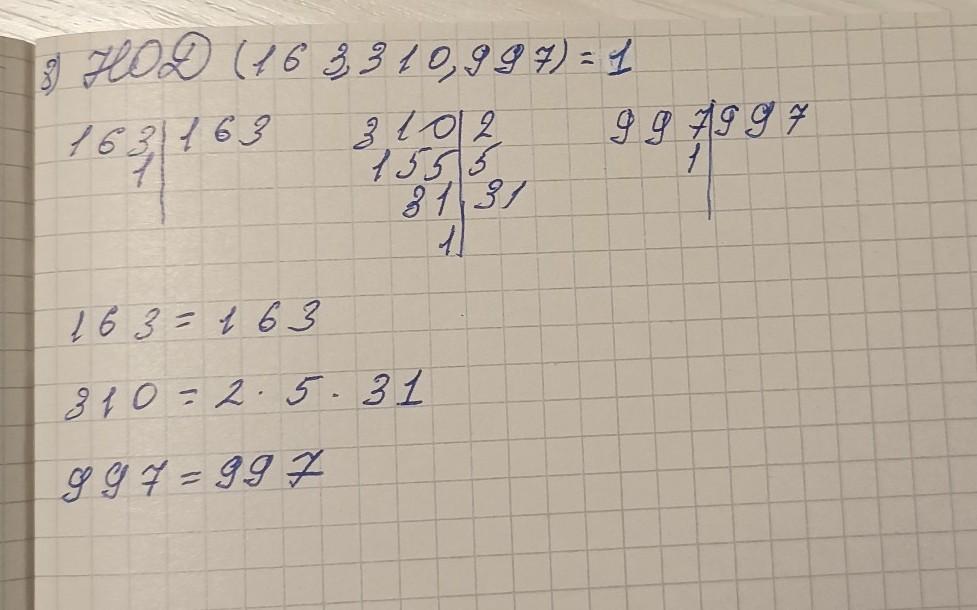 8) НОД (163,310,997) = 1
163|163 310|2 997|997
1| 155|5 1|
31|31
1|
163 = 163
310 = 2 · 5 · 31
997 = 997